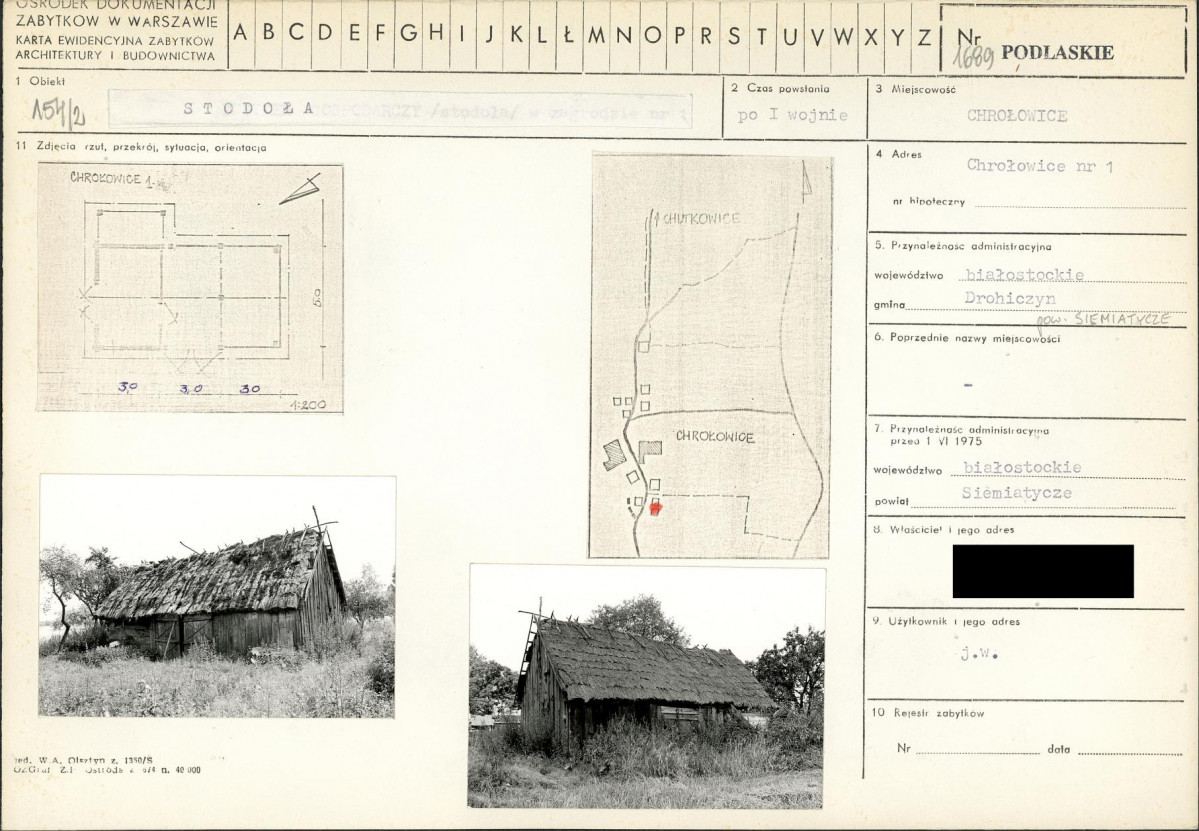 OŚRODEK DOKUMENTACJI
ZABYTKÓW W WARSZAWIE
KARTA EWIDENCYJNA ZABYTKÓW
ARCHITEKTURY I BUDOWNICTWA
A B C D E F G H I J K L Ł M N O P R S T U V W X Y Z
Nr
1689 PODLASKIE
1 Obiekt
154/2
STODOŁA
2 Czas powstania
po I wojnie
3 Miejscowość
CHROŁOWICE
11 Zdjęcia rzut, przekrój, sytuacja, orientacja
CHROŁOWICE 1
3,0 3,0 3,0
1:200
CHUTKOWICE
CHROŁOWICE
4 Adres
Chrołowice nr 1
nr hipoteczny
5. Przynależność administracyjna
województwo białostockie
gmina Drohiczyn
pow. SIEMIATYCZE
6. Poprzednie nazwy miejscowości
-
7. Przynależność administracyjna
przed 1 VI 1975
województwo białostockie
powiat Siemiatycze
8. Właściciel i jego adres
9. Użytkownik i jego adres
j.w.
10 Rejestr zabytków
Nr data
W.A. Olsztyn z. 1350/S
n. 40 000